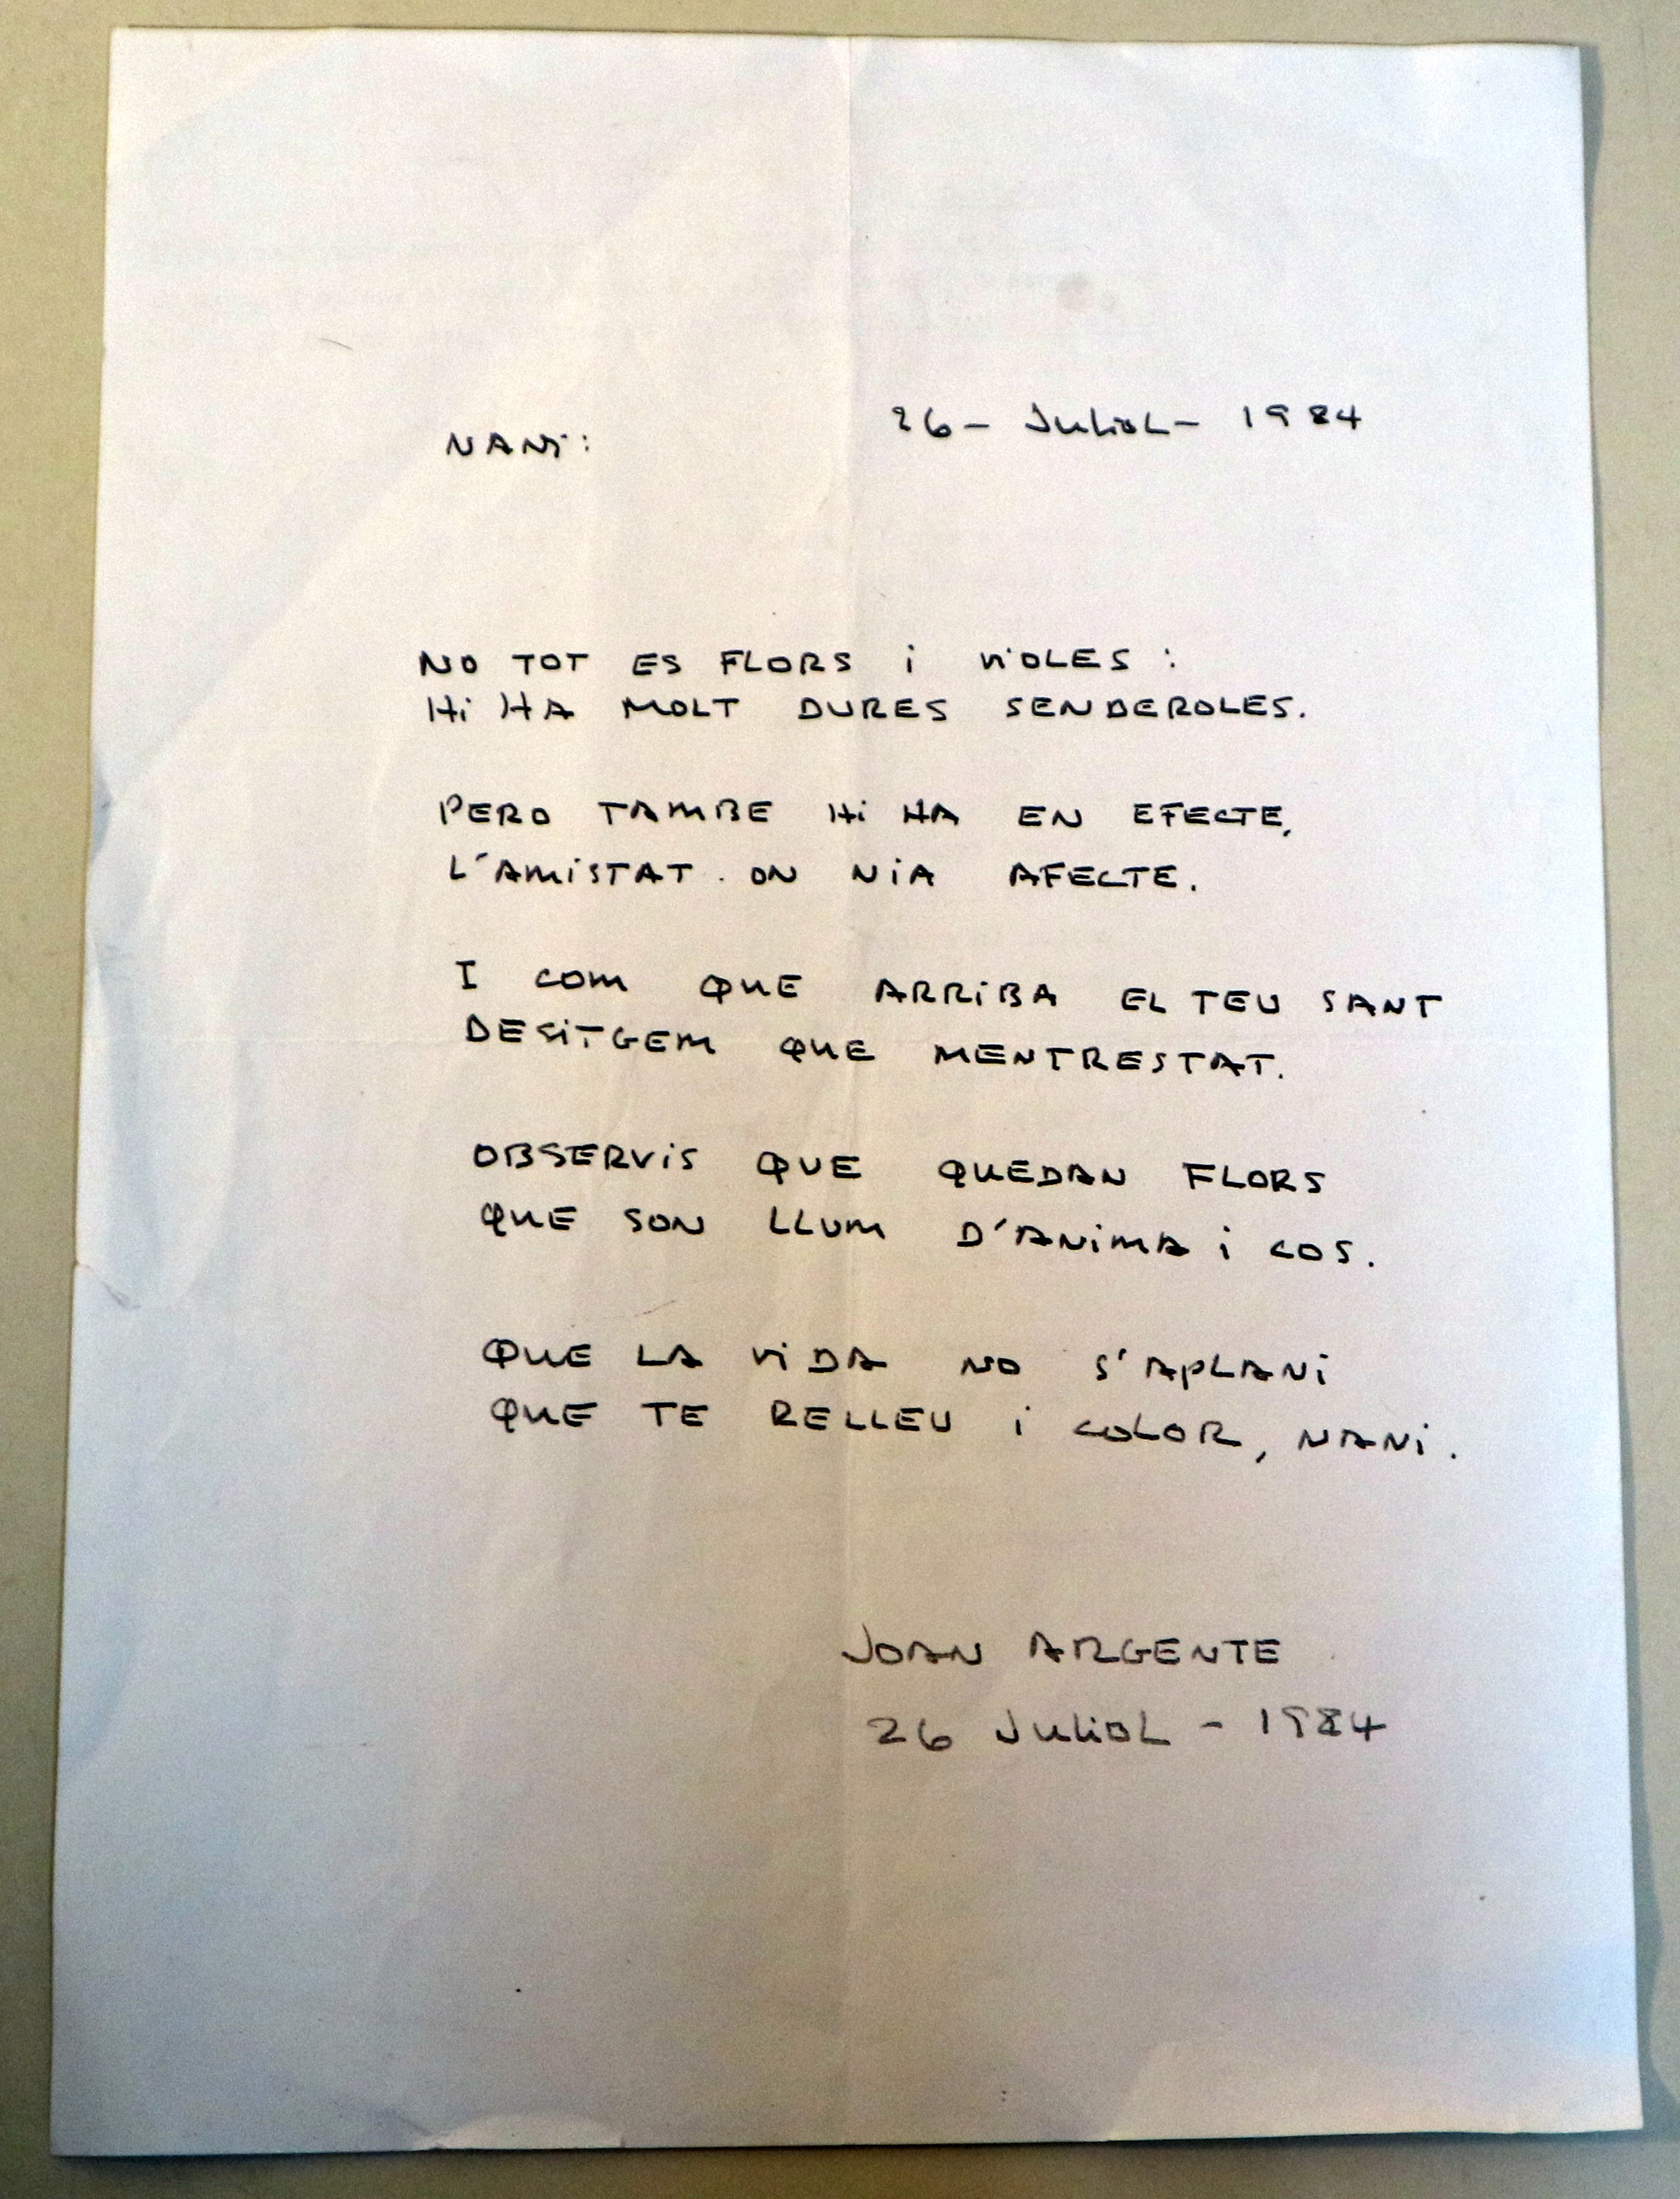 NANi:
26- JULiOL- 1984
NO TOT ES FLORS i ViOLES :
Hi HA MOLT DURES SENDEROLES.
PERO TAMBE Hi HA EN EFECTE,
L'AMiSTAT. ON NiA AFECTE.
I COM QUE ARRiBA EL TEU SANT
DESiTGEM QUE MENTRESTAT.
OBSERViS QUE QUEDAN FLORS
QUE SON LLUM D'ANiMA i COS.
QUE LA ViDA NO S'APLANi
QUE TE RELLEU i COLOR, NANi.
JOAN ARGENTE
26 JULiOL - 1984